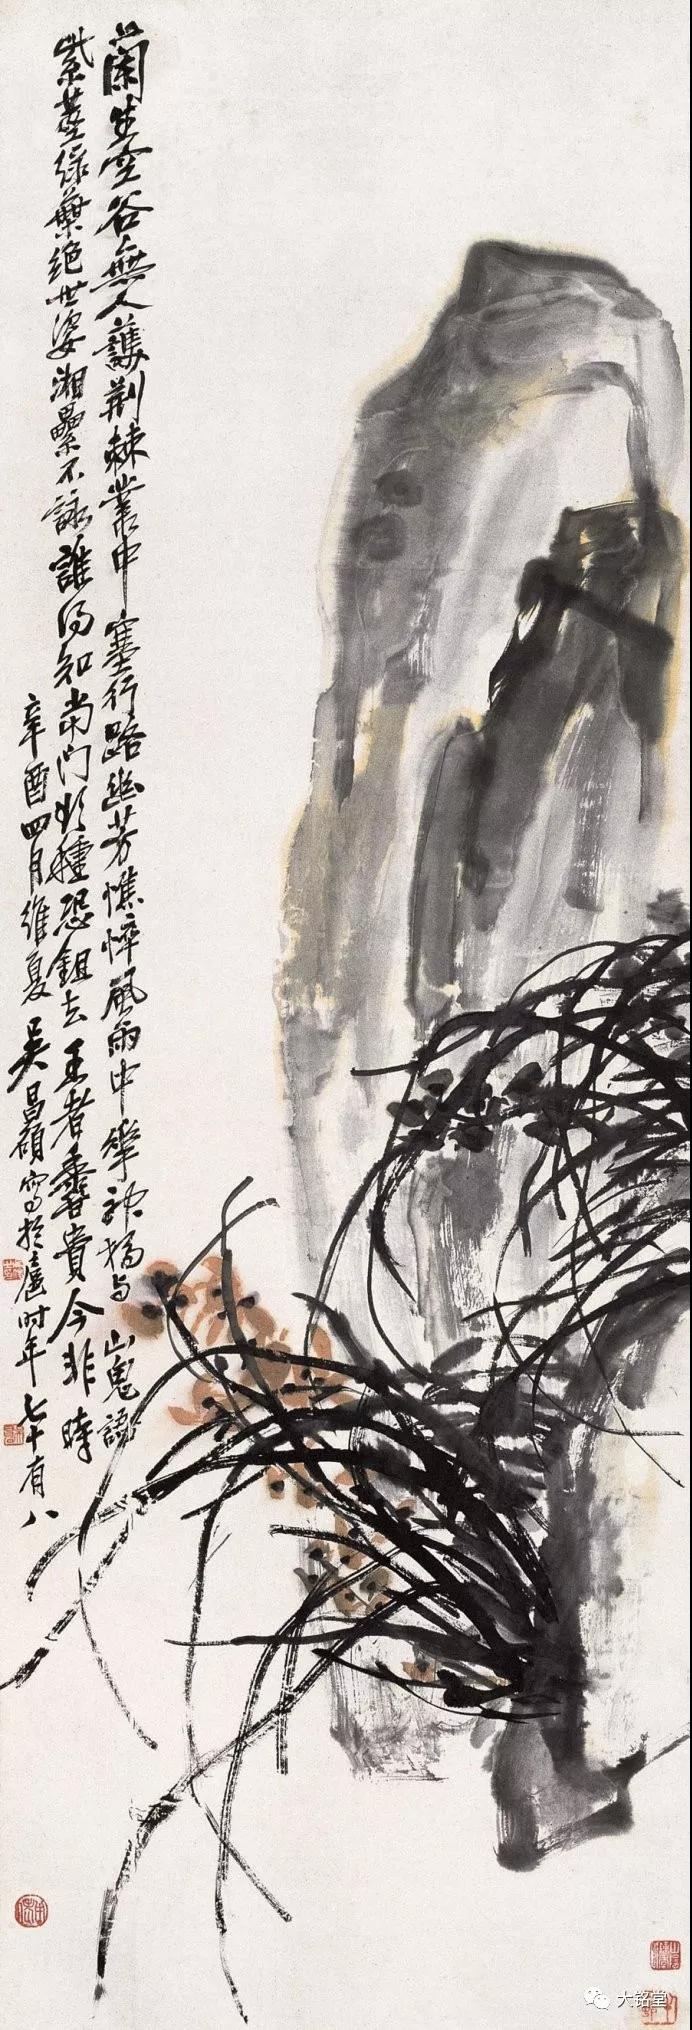 蘭生空谷無人護荆棘叢中塞行路幽芳憔悴風雨中華神獨与山鬼語
紫莖綠葉絕世姿湘纍不詠誰得知當門欲種恐鉏去王者香貴今非時
辛酉四月維夏吳昌碩寫於扈时年七十有八
大铭堂